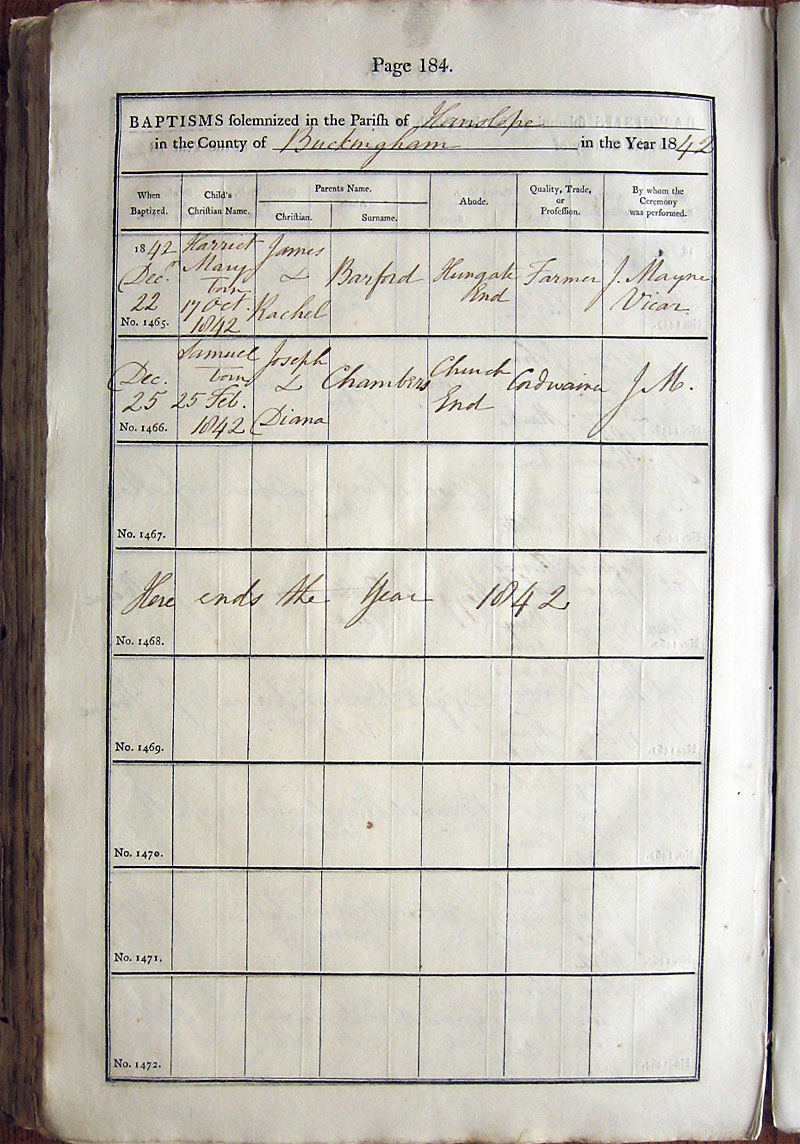 Page 184.
BAPTISMS solemnized in the Parish of Hanslope
in the County of Buckingham in the Year 1842
When Baptized.
Child's Christian Name.
Parents Name.
Christian.
Surname.
Abode.
Quality, Trade, or Profession.
By whom the Ceremony was performed.
1842
Decr
22
No. 1465.
Harriet
Mary
born
17 Oct.
1842
James
&
Rachel
Barford
Hungate
End
Farmer
J. Mayne
Vicar
Dec.
25
No. 1466.
Samuel
born
25 Feb.
1842
Joseph
&
Diana
Chambers
Church
End
Cordwainer
J. M.
No. 1467.
Here ends the Year 1842
No. 1468.
No. 1469.
No. 1470.
No. 1471.
No. 1472.